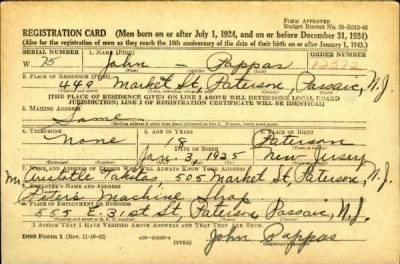 FORM APPROVED
REGISTRATION CARD (Men born on or after July 1, 1924, and on or before December 31, 1924)
(Also for the registration of men as they reach the 18th anniversary of the date of their birth on or after January 1, 1943.)
SERIAL NUMBER 1. NAME (Print) ORDER NUMBER
W 75 John - Pappas
2. PLACE OF RESIDENCE (Print)
440 Market St, Paterson, Passaic, N.J.
[THE PLACE OF RESIDENCE GIVEN ON LINE 2 ABOVE WILL DETERMINE LOCAL BOARD
JURISDICTION; LINE 2 OF REGISTRATION CERTIFICATE WILL BE IDENTICAL]
3. MAILING ADDRESS
Same
4. TELEPHONE 5. AGE IN YEARS 6. PLACE OF BIRTH
None Paterson
Jan. 3, 1925 New Jersey
7. NAME AND ADDRESS OF PERSON WHO WILL ALWAYS KNOW YOUR ADDRESS
Mr Aristotle 505 Market St, Paterson, N.J.
8. EMPLOYER'S NAME AND ADDRESS
Peters Machine Shop
9. PLACE OF EMPLOYMENT OR BUSINESS
555 E. 31st St, Paterson Passaic, N.J.
I AFFIRM THAT I HAVE VERIFIED ABOVE ANSWERS AND THAT THEY ARE TRUE.
DSS Form 1 (OVER) John Pappas